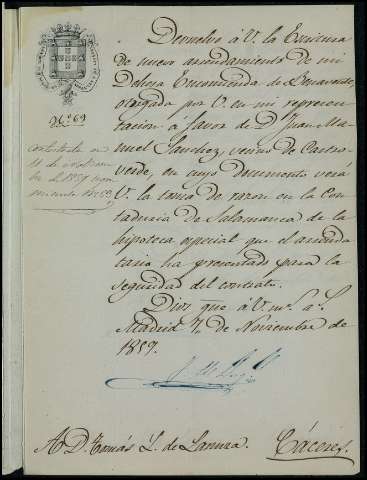 Nº 69
Contestada en
Devuelvo á V. la Escritura
de nuevo arrendamiento de mi
Dehesa Encomienda de Benavente,
otorgada por V. en mi represen-
tacion á favor de D. Juan Ma-
nuel Sanchez, vecino de Castro-
verde, en cuyo documento verá
V. la toma de razon en la Con-
taduria de Salamanca de la
hipoteca especial que el arrenda-
tario ha presentado para la
seguridad del contrato.
Dios gue. á V. ms. as.
Madrid 7 de Noviembre de
1859.
A D. Tomás L. de Lanuza. Cáceres.